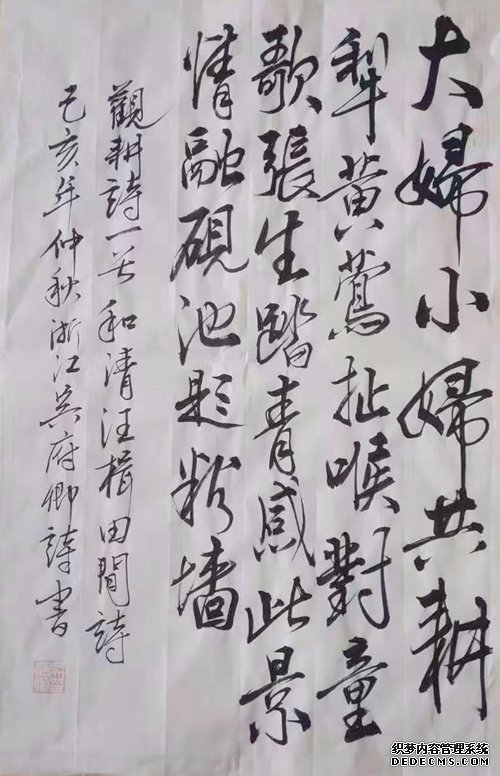 大婦小婦共耕
犁黄鶯扯喉對童
歌張生踏青感此景
情融硯池題粉墻
觀耕詩一首和清汪楫田間詩
己亥年仲秋浙江吴府卿詩書
织梦内容管理系统
DEDECMS.COM